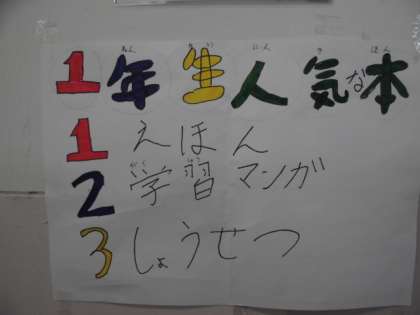 1年生人気な本
1 えほん
2 学習マンガ
3 しょうせつ